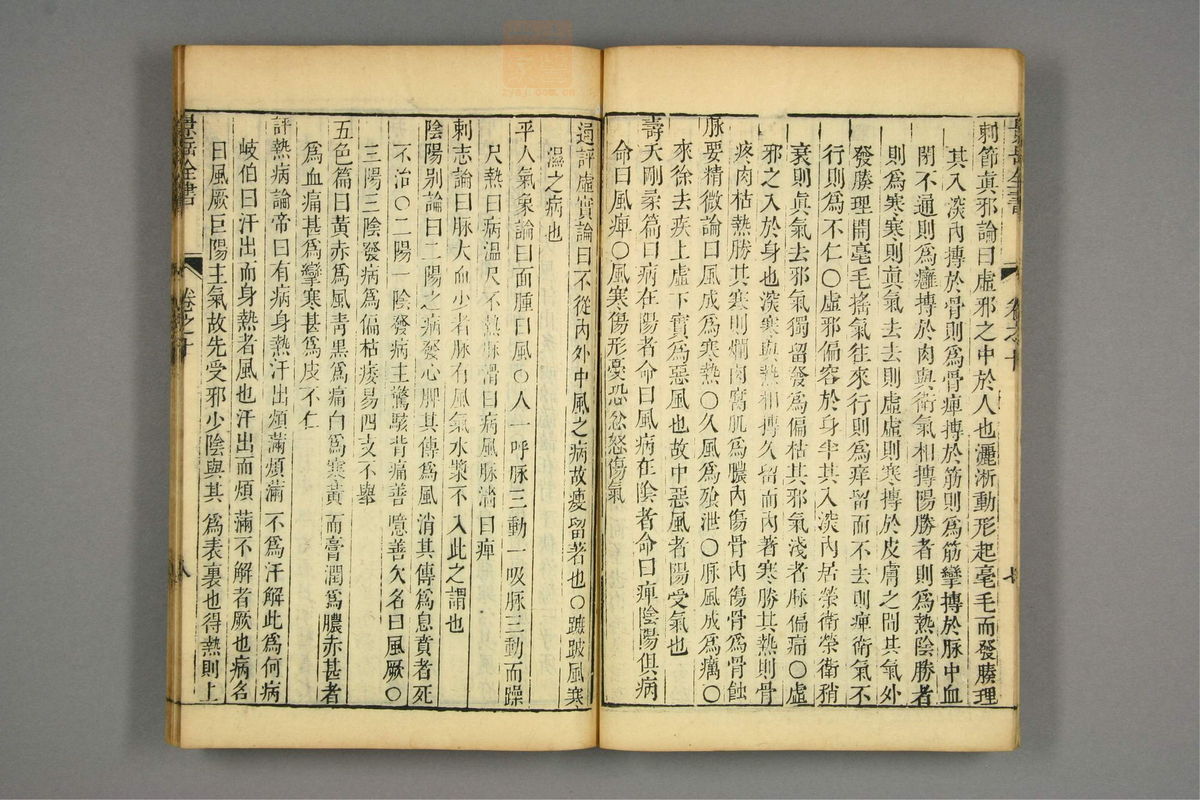 刺節真邪論曰虛邪之中於人也灑淅動形起毫毛而發腠理
其入深內搏於骨則為骨痺搏於筋則為筋攣搏於脈中血
閉不通則為癰搏於肉與衛氣相搏陽勝者則為熱陰勝者
則為寒寒則眞氣去去則虛虛則寒搏於皮膚之間其氣外
發腠理開毫毛搖氣往來行則為痒留而不去則痺衛氣不
行則為不仁○虛邪偏容於身半其入深內居榮衛榮衛稍
衰則眞氣去邪氣獨留發為偏枯其邪氣淺者脈偏痛○虛
邪之入於身也深寒與熱相搏久留而內著寒勝其熱則骨
疼肉枯熱勝其寒則爛肉腐肌為膿內傷骨內傷骨為骨蝕
脈要精微論曰風成為寒熱○久風為飱泄○脈風成為癘○
來徐去疾上虛下實為惡風也故中惡風者陽受氣也
壽夭剛柔篇曰病在陽者命曰風病在陰者命曰痺陰陽俱病
命曰風痺○風寒傷形憂恐忿怒傷氣
景岳全書
卷之十
通評虛實論曰不從內外中風之病故瘦留著也○蹠跛風寒
濕之病也
平人氣象論曰面腫曰風○人一呼脈三動一吸脈三動而躁
尺熱曰病溫尺不熱脈滑曰病風脈濇曰痺
刺志論曰脈大血少者脈有風氣水漿不入此之謂也
陰陽别論曰二陽之病發心脾其傳為風消其傳為息賁者死
不治○二陽一陰發病主驚駭背痛善噫善欠名曰風厥○
三陽三陰發病為偏枯痿易四支不舉
五色篇曰黃赤為風靑黑為痛白為寒黃而膏潤為膿赤甚者
為血痛甚為攣寒甚為皮不仁
評熱病論帝曰有病身熱汗出煩滿煩滿不為汗解此為何病
岐伯曰汗出而身熱者風也汗出而煩滿不解者厥也病名
曰風厥巨陽主氣故先受邪少陰與其為表裏也得熱則上
景岳全書
卷之十
八